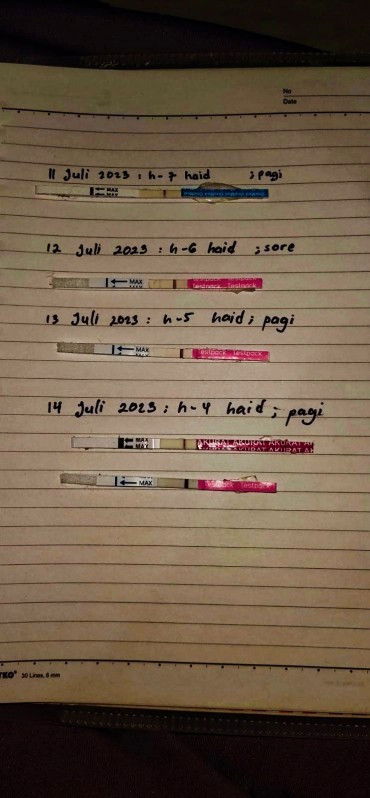 No
Date
11 Juli 2023 : h-7 haid ; pagi
MAX
12 Juli 2023 : h-6 haid ; sore
MAX
Testpack Testpack
13 Juli 2023 : h-5 haid ; pagi
MAX
Testpack Testpack
14 Juli 2023 : h-4 haid ; pagi
MAX
AKURAT AKURAT
AKURAT AKURAT
MAX
Testpack
30 Lines, 8 mm